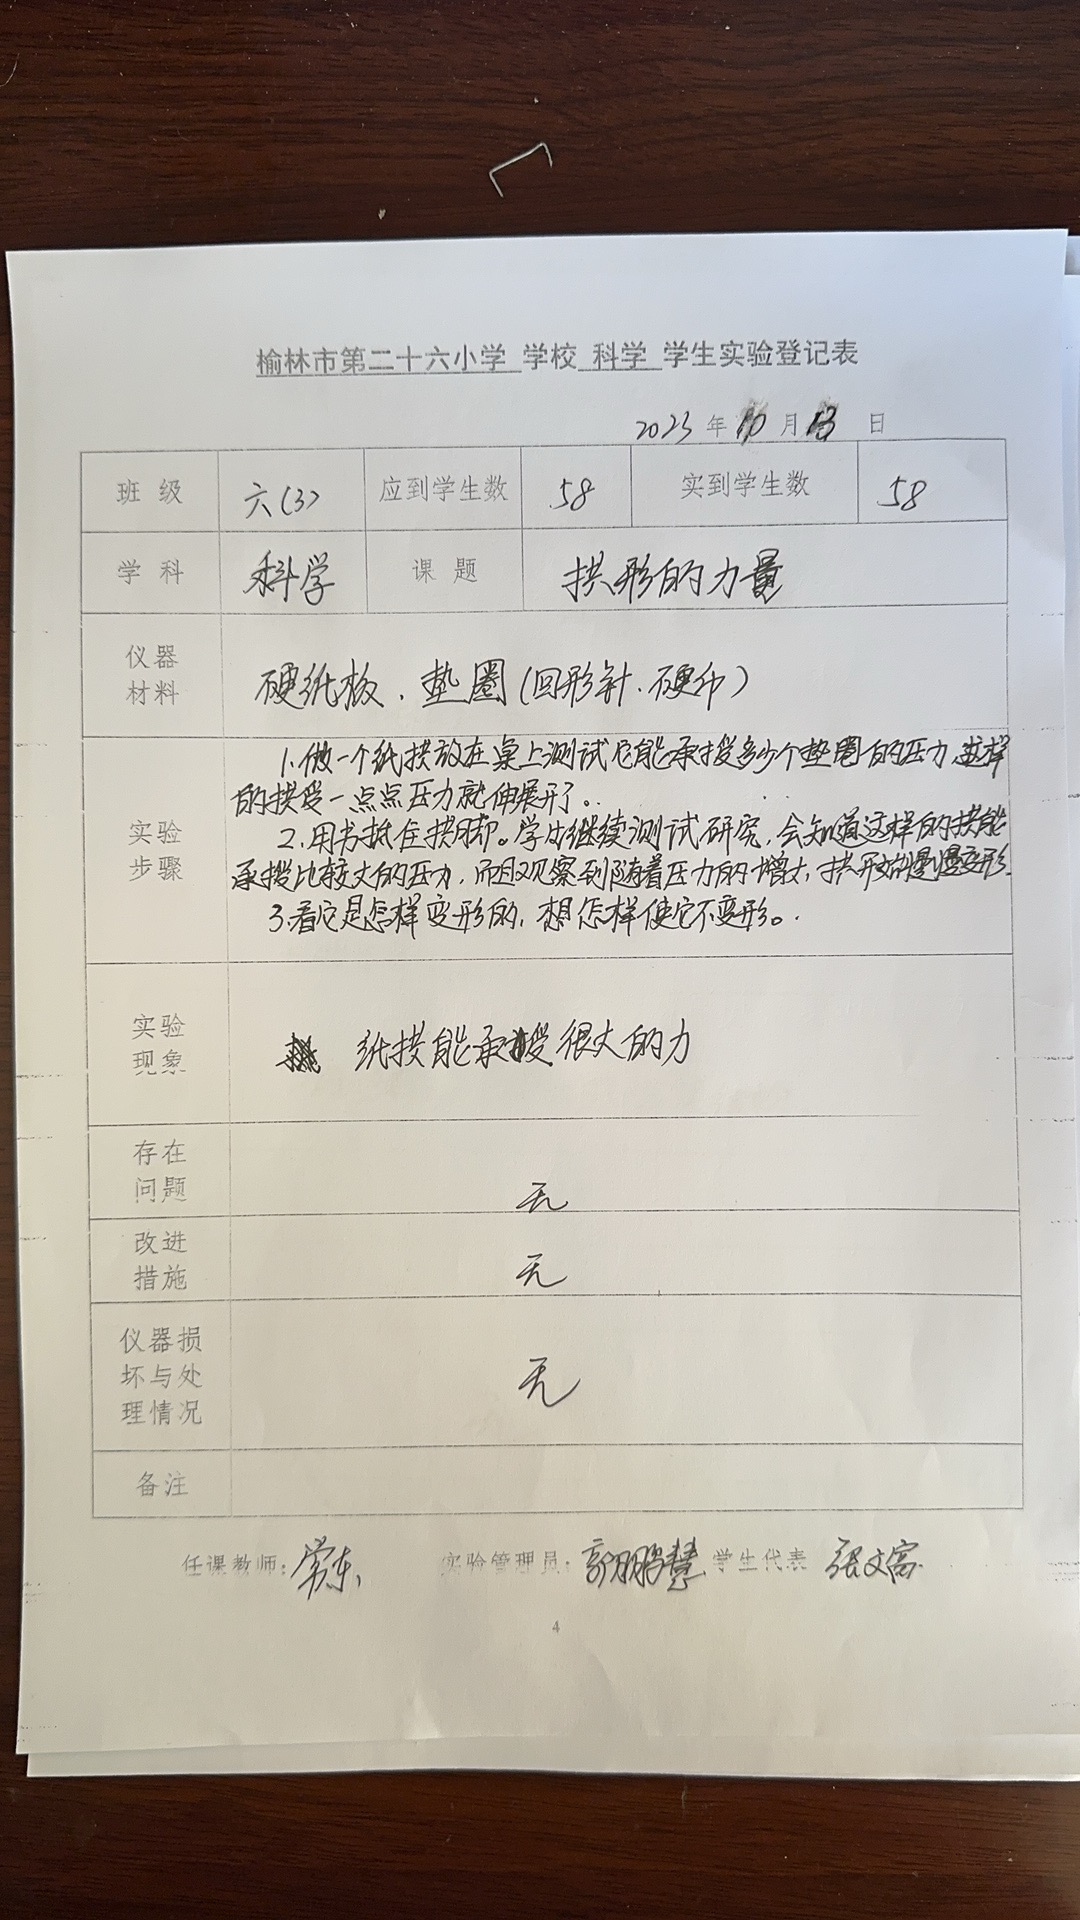 榆林市第二十六小学 学校 科学 学生实验登记表
2023 年 10 月 13 日
班级 六(3) 应到学生数 58 实到学生数 58
学科 科学 课题 拱形的力量
仪器
材料
硬纸板、垫圈(回形针、硬币)
实验
步骤
1.做一个纸拱放在桌上测试它能承授多少个垫圈的压力,这样
的拱受一点点压力就伸展开了。
2.用书抵住拱脚。学生继续测试研究,会知道这样的拱能
承授比较大的压力,而且观察到随着压力的增大,拱形慢慢变形
3.看它是怎样变形的,想怎样使它不变形。
实验
现象
纸拱能承授很大的力
存在
问题
无
改进
措施
无
仪器损
坏与处
理情况
无
备注
任课教师: 常东 实验管理员: 郭鹏慧 学生代表 张文富
4